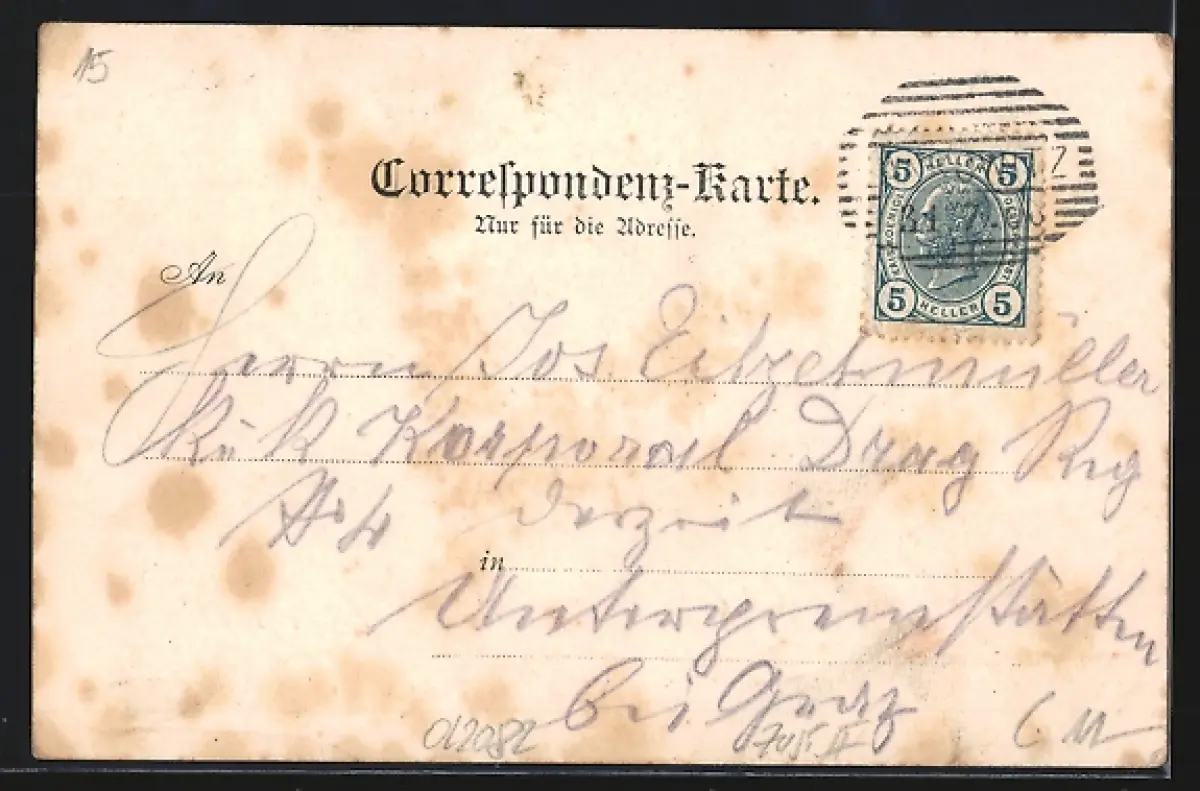 15
Correspondenz-Karte.
Nur für die Adresse.
5 HELLER 5
5 HELLER 5
21 7
An
Herrn Jos Eitzelmüller
K. u. K. Korporal Drag Rg
No 4 derzeit
in
Unterpremstätten
bei Graz